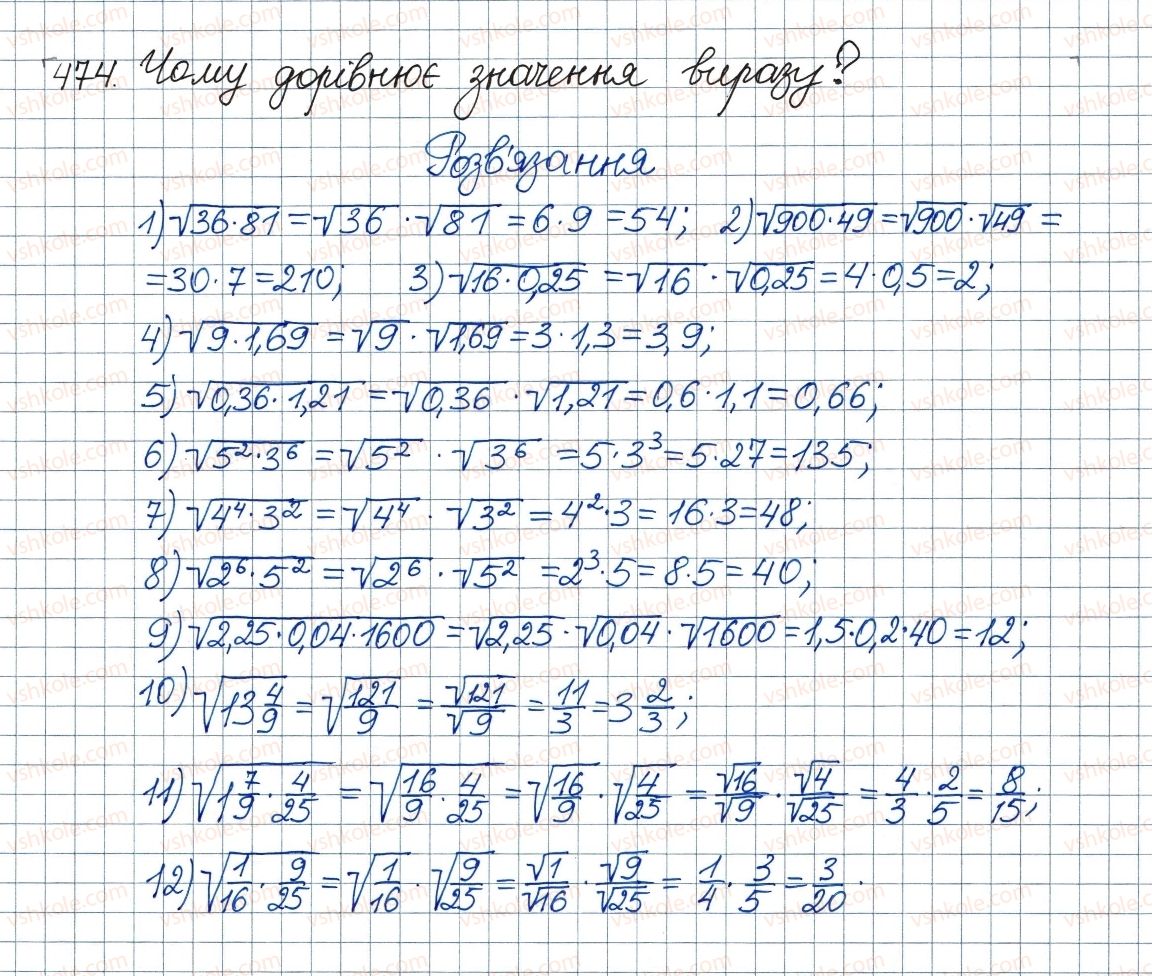 474. Чому дорівнює значення виразу?
Розв'язання
1) √(36·81) = √36 · √81 = 6·9 = 54; 2) √(900·49) = √900 · √49 =
= 30·7 = 210; 3) √(16·0,25) = √16 · √0,25 = 4·0,5 = 2;
4) √(9·1,69) = √9 · √1,69 = 3·1,3 = 3,9;
5) √(0,36·1,21) = √0,36 · √1,21 = 0,6·1,1 = 0,66;
6) √(5²·3⁶) = √5² · √3⁶ = 5·3³ = 5·27 = 135;
7) √(4⁴·3²) = √4⁴ · √3² = 4²·3 = 16·3 = 48;
8) √(2⁶·5²) = √2⁶ · √5² = 2³·5 = 8·5 = 40;
9) √(2,25·0,04·1600) = √2,25 · √0,04 · √1600 = 1,5·0,2·40 = 12;
10) √(13 4/9) = √(121/9) = √121/√9 = 11/3 = 3 2/3;
11) √(1 7/9 · 4/25) = √(16/9 · 4/25) = √(16/9) · √(4/25) = √16/√9 · √4/√25 = 4/3 · 2/5 = 8/15;
12) √(1/16 · 9/25) = √(1/16) · √(9/25) = √1/√16 · √9/√25 = 1/4 · 3/5 = 3/20.